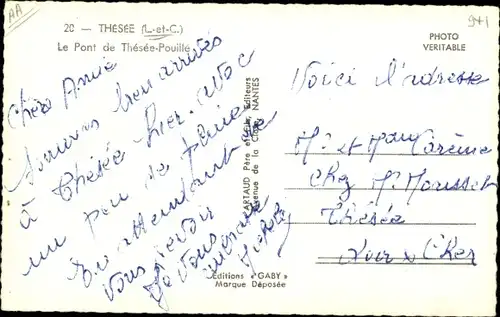 AA
20 — THÉSÉE (L.-et-C.)
Le Pont de Thésée-Pouillé
PHOTO
VERITABLE
941
Chère Amie
Sommes bien arrivés
à Thésée hier avec
un peu de pluie
En attendant de
Vous revoir
Je Vous
ARTAUD Père et Fils, Editeurs
Avenue de la Close, NANTES
Editions « GABY »
Marque Déposée
Voici l'adresse
Mr et Mme
chez Mr
Thésée
Loir & Cher